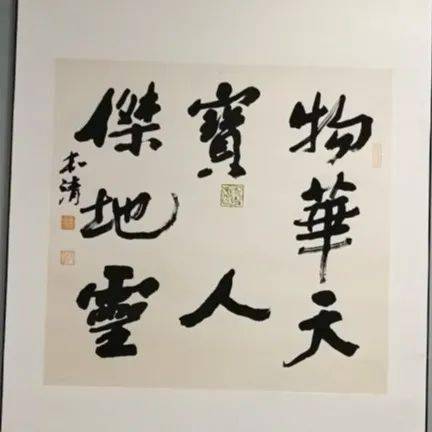 物華天
寶人
傑地靈
志清